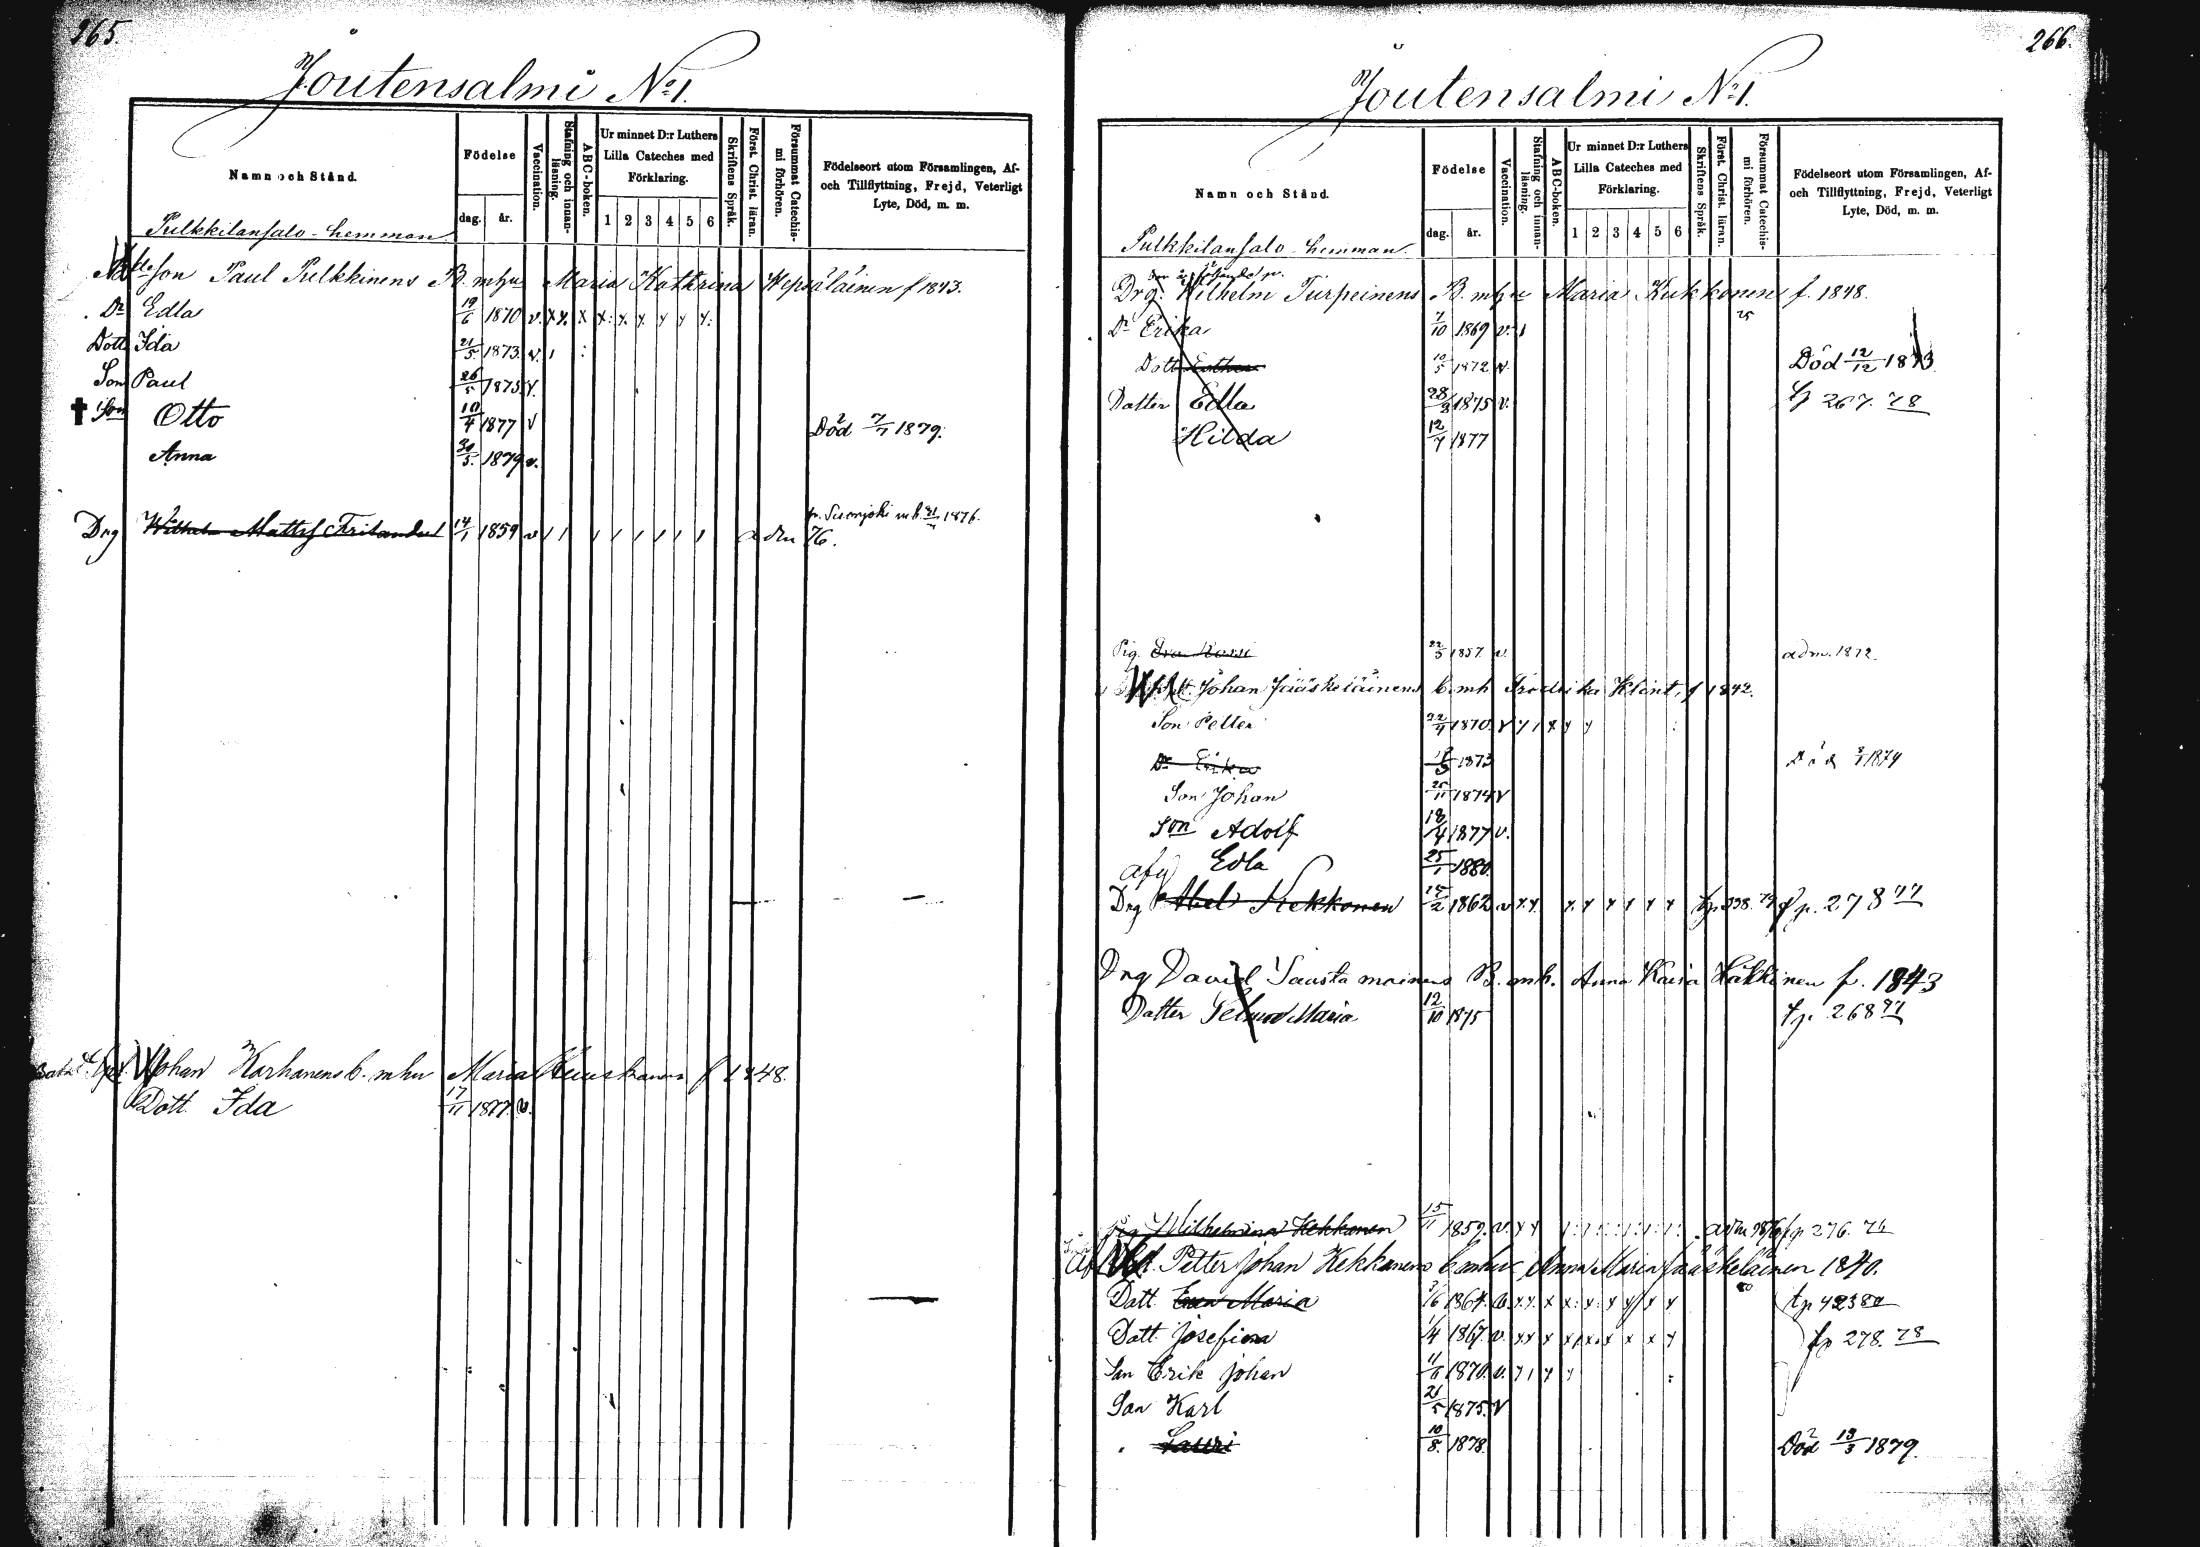 265.
Joutensalmi No 1.
Namn och Stånd.
Födelse
dag.
år.
Vaccination.
Stafning och innan-
läsning.
ABC-boken.
Ur minnet D:r Luthers
Lilla Cateches med
Förklaring.
1 2 3 4 5 6
Skriftens Språk.
Först. Christ. läran.
Försummat Catechis-
mi förhören.
Födelseort utom Församlingen, Af-
och Tillflyttning, Frejd, Veterligt
Lyte, Död, m. m.
Pulkkilansalo-hemman
son Paul Pulkkinens B. mhu Maria Kathrina Wepsäläinen f 1843.
Dr Edla 19/6 1870 v. x x. x x: x. x x x x:
Dott Ida 21/5 1873. v. 1 :
Son Paul 26/5 1875 v.
Son Otto 10/4 1877 v Död 7/7 1879.
Anna 30/5. 1879 v.
1876.
Drg Wilhelm Matts 14/1 1859 v 1 1 1 1 1 1 1 1 76.
Johan Karhanens b. mhu Maria f 1848.
Dott. Ida 17/11 1877. v.
266.
Joutensalmi No 1.
Namn och Stånd.
Födelse
dag.
år.
Vaccination.
Stafning och innan-
läsning.
ABC-boken.
Ur minnet D:r Luthers
Lilla Cateches med
Förklaring.
1 2 3 4 5 6
Skriftens Språk.
Först. Christ. läran.
Försummat Catechis-
mi förhören.
Födelseort utom Församlingen, Af-
och Tillflyttning, Frejd, Veterligt
Lyte, Död, m. m.
Pulkkilansalo-hemman.
Drg. Wilhelm Turpeinens B. mhu Maria Kukkonen f. 1848.
Dr Erika 7/10 1869 v. 1
Dott Esther 10/5 1872 v. Död 12/12 1873
Dotter Edla 28/3 1875 v. 267. 78
Hilda 12/7 1877
Pig. 22/5 1857 v. adm. 1872.
Johan Jääskeläinens b. mh Fredrika Klint, f 1842.
Son Petter 22/4 1870. v x 1 x x x
Dr Erika 1873 Död 1874
Son Johan 25/11 1874 v
Son Adolf 18/4 1877 v.
Edla 25/1 1880.
Drg Abel Kekkonen 15/2 1862 v x x x x x x x x p. 278 77
Drg David Saastamoinens B. mh. Anna Kaisa Häkkinen f. 1843
Dotter Selma Maria 12/10 1875 268 77
Pig Wilhelmina Kekkonen 15/11 1859. v. x x adm 1876 276. 76
Petter Johan Kekkonens b. mhu Anna Maria Jääskeläinen 1840.
Dott. Eva Maria 1864. v. x x. x x: x: x x x x
Dott Josefina 1/4 1867. v. x x x x x x x x x 278. 78
Son Erik Johan 1870. v. x 1 x x
Son Karl 21/5 1875. v
Lauri 10/8. 1878. Död 13/3 1879.